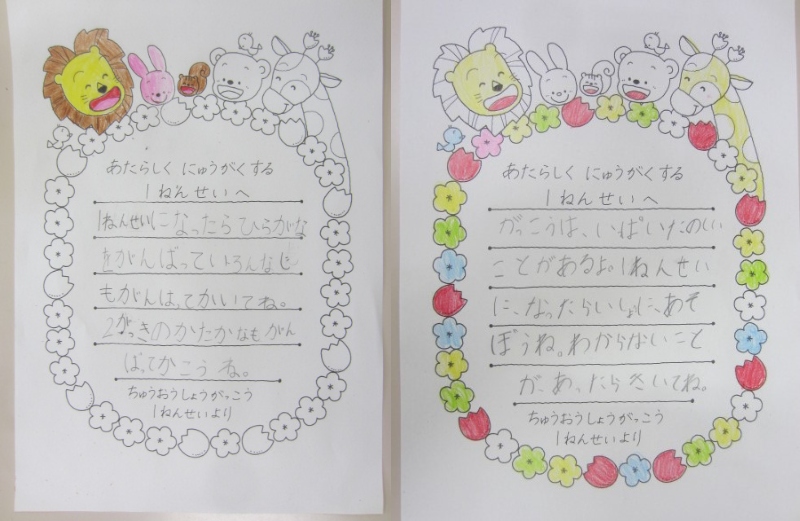 あたらしく にゅうがくする
1ねんせいへ
1ねんせいになったら ひらがな
をがんばっていろんなじ
もがんばってかいてね。
2がっきのかたかなもがん
ばってかこうね。
ちゅうおうしょうがっこう
1ねんせいより
あたらしく にゅうがくする
1ねんせいへ
がっこうは、いぱいたのしい
ことがあるよ。1ねんせい
に、なったらいしょに、あそ
ぼうね。わからないこと
が、あったらきいてね。
ちゅうおうしょうがっこう
1ねんせいより